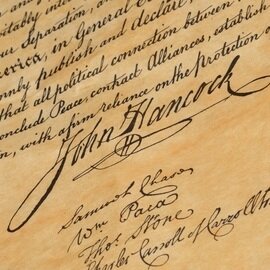 our Separation, and
in General
publish and declare,
that all political connection between
conclude Peace, contract Alliances, establish
n, with a firm reliance on the protection of
John Hancock
Samuel Chase
Wm Paca
Thos Stone
Charles Carroll of Carrollton